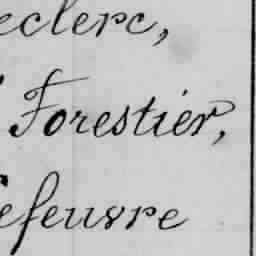 eclerc,
Forestier,
efeuvre